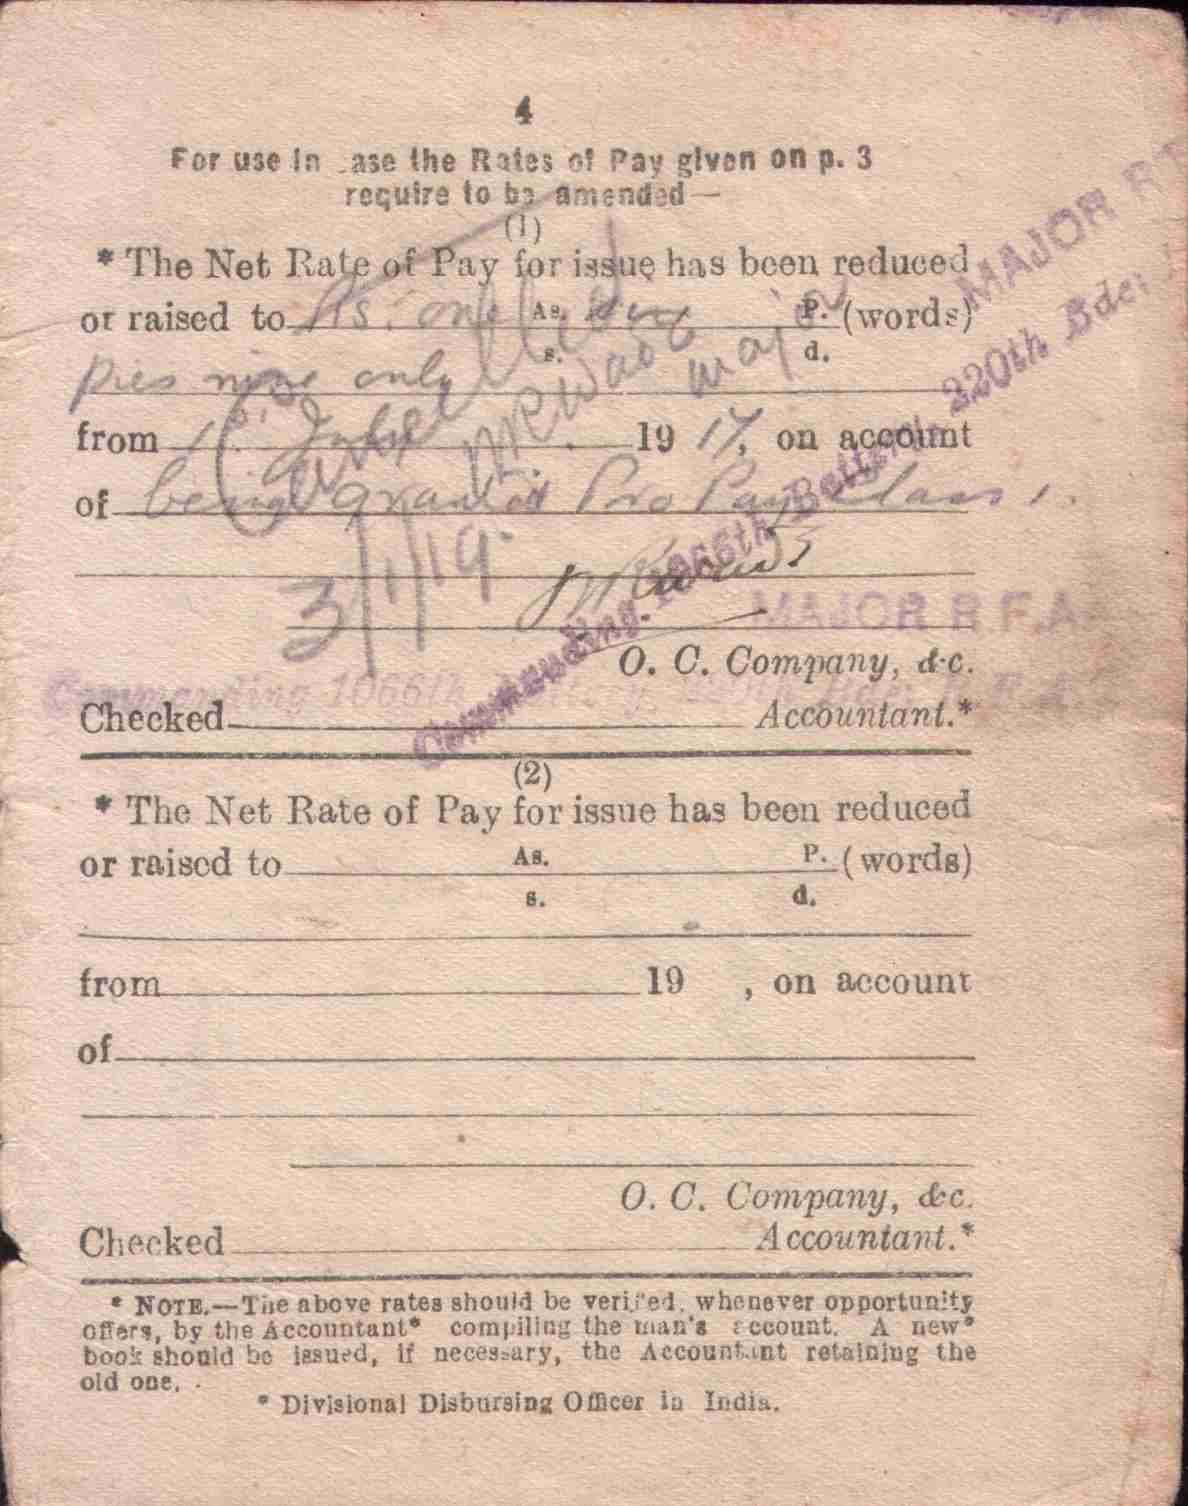 4
For use in case the Rates of Pay given on p. 3
require to be amended—
(1)
* The Net Rate of Pay for issue has been reduced
or raised to Rs. one As. six P. (words)
s. d.
pies nine only
from 1 July 1917, on account
of being granted Pro Pay class 1.
3/1/19.
major
MAJOR R.F.A.
Commanding 1066th Battery, 220th Bde:
MAJOR R.F.A.
O. C. Company, &c.
Commanding 1066th Battery 220th Bde: R.F.A.
Checked Accountant.*
(2)
* The Net Rate of Pay for issue has been reduced
or raised to As. P. (words)
s. d.
from 19 , on account
of
O. C. Company, &c.
Checked Accountant.*
* NOTE.—The above rates should be verified, whenever opportunity
offers, by the Accountant* compiling the man's account. A new*
book should be issued, if necessary, the Accountant retaining the
old one.
* Divisional Disbursing Officer in India.